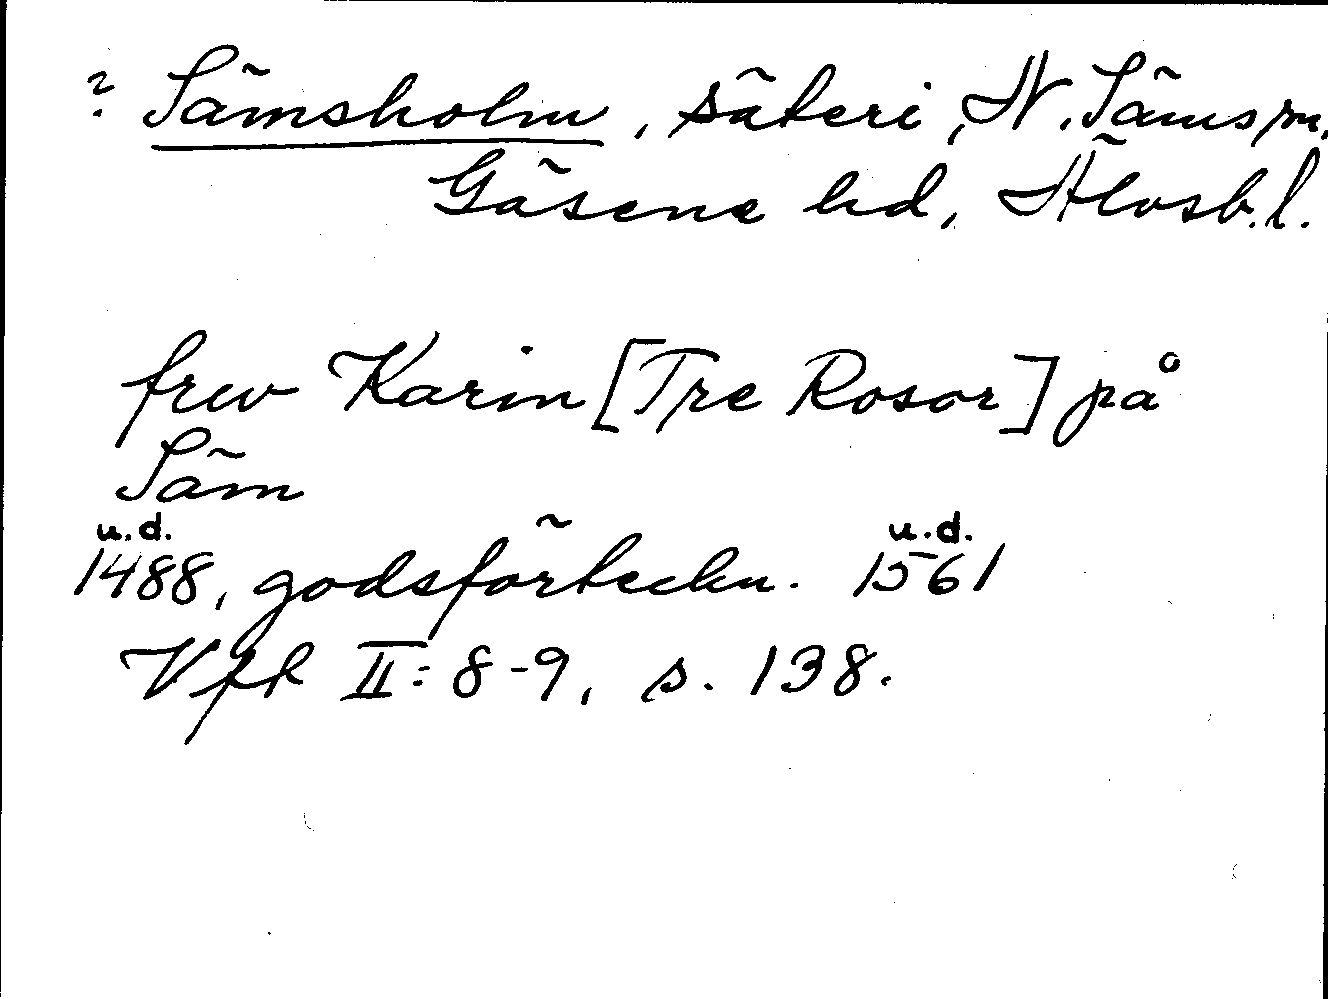 ? Sämsholm, säteri, N. Säms sn,
Gäsene hd, Älvsb. l.
frw Karin [Tre Rosor] på
Säm
u.d. u.d.
1488, godsförteckn. 1561
Vfr II: 8-9, s. 138.